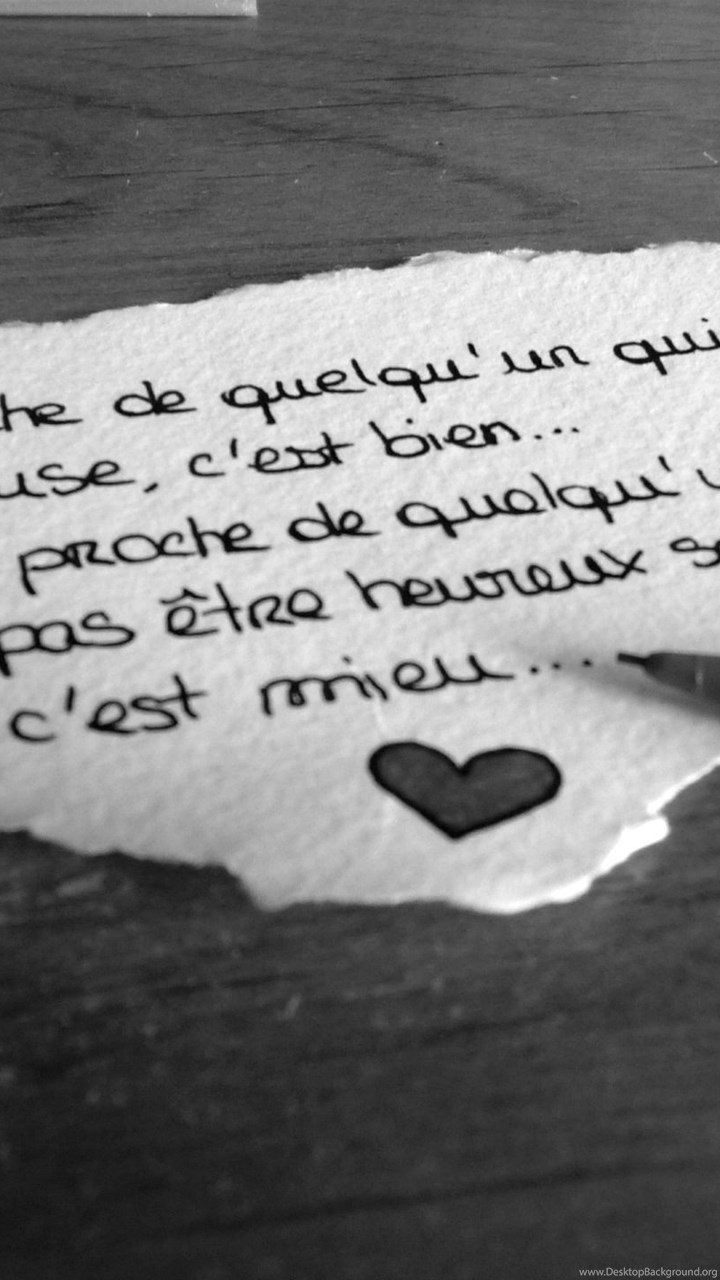 he de quelqu'un qui
use, c'est bien...
proche de quelqu'u
pas être heureux s
c'est mieu...
www.DesktopBackground.org